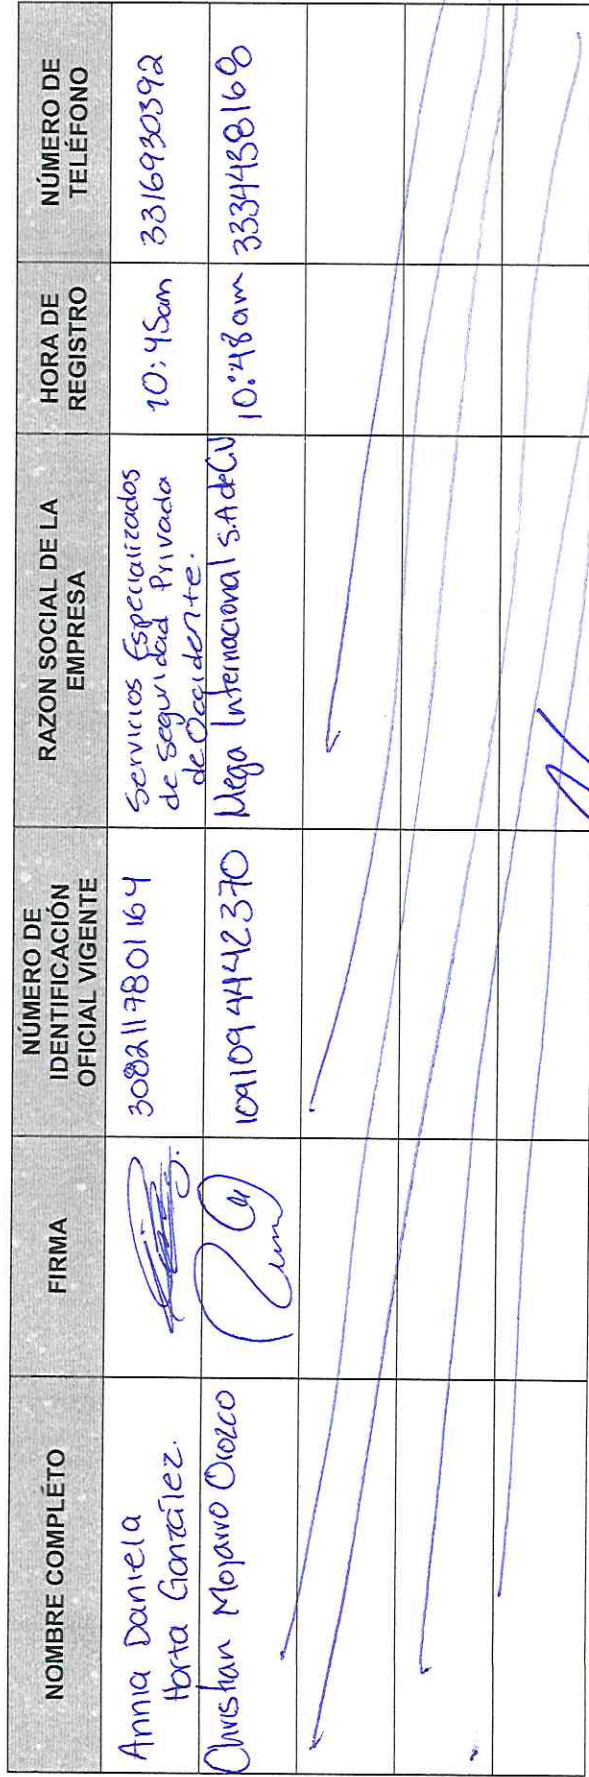 NOMBRE COMPLÉTO
FIRMA
NÚMERO DE
IDENTIFICACIÓN
OFICIAL VIGENTE
RAZON SOCIAL DE LA
EMPRESA
HORA DE
REGISTRO
NÚMERO DE
TELÉFONO
Annia Daniela
Horta González.
3082117801164
Servicios Especializados
de Seguridad Privada
de Occidente.
10:45am
3316930392
Christian Mojarro Orozco
1091094442370
Mega Internacional S.A de C.V
10:48am
3334438168